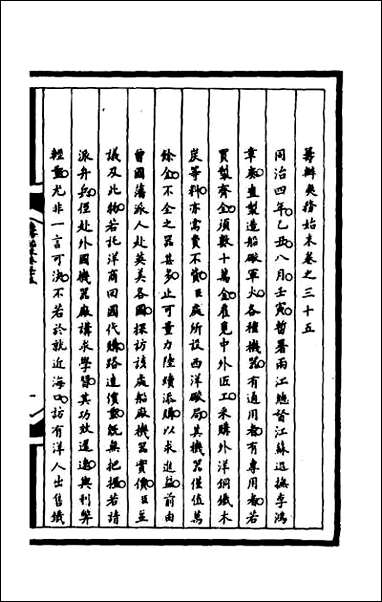 籌辦夷務始末卷之三十五
同治四年乙丑八月壬寅暫署兩江總督江蘇巡撫李鴻
章奏直製造船礮軍火各種機器有通用者有專用者若
買製齊全須數十萬金雇覓中外匠工采購外洋銅鐵木
炭等料亦需費不貲臣處所設西洋礮局其機器僅值萬
餘金不全之器甚多止可量力陸續添購以求進益前由
曾國藩派人赴英美各國探訪該處船廠機器實價臣並
議及此物若託洋商回國代購路遠價重既無把握若請
派弁兵徑赴外國機器廠講求學習其功效遲速與利弊
輕重尤非一言可決不若於就近海口訪有洋人出售鐵